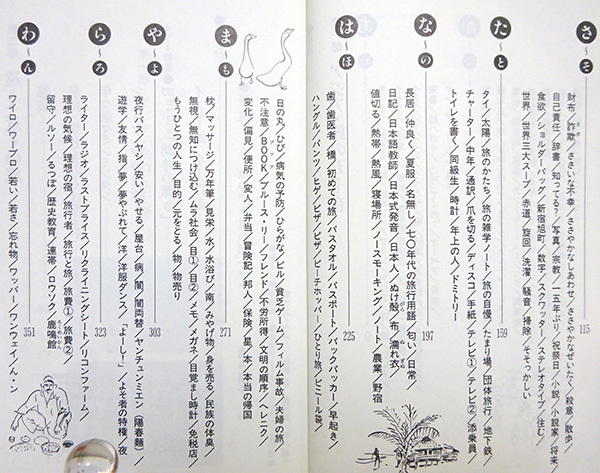 さ〜そ
財布／詐欺／ささいな不幸／ささやかなしあわせ／ささやかなぜいたく／殺意／散歩／
自己責任／辞書／知ってる?／写真／宗教／一五年ぶり／祝祭日／小説／小説家／将来／
食欲／ショルダーバッグ／新宿旭町／数字／スクワッター／ステレオタイプ／住む／
世界／世界三大スープ／赤道／旋回／洗濯／騒音／掃除／そそっかしい
115
た〜と
タイ／太陽／旅のかたち／旅の雑学ノート／旅の自慢／たまり場／団体旅行／地下鉄／
チャーター／中年／通訳／爪を切る／ディスコ／手紙／テレビ①／テレビ②／添乗員／
トイレを書く／同級生／時計／年上の人／ドミトリー
159
な〜の
長居／仲良く／夏服／名無し／七〇年代の旅行用語／匂い／日常／
日記／日本語教師／日本式発音／日本人／ぬけ殻／布／濡れ衣／
値切る／熱帯／熱風／寝場所／ノースモーキング／ノート／農業／野宿
197
は〜ほ
歯／歯医者／橋／初めての旅／バスタオル／パスポート／バックパッカー／早起き／
ハングル／パンツ／ヒゲ／ビザ／ピザ／ビーチホッパー／ひとり旅／ビニール袋／
225
日の丸／ひび／病気の予防／ひらがな／ビル／貧乏ゲーム／フィルム事故／夫婦の旅／
不注意／BOOK／ブルース・リー／フレンド／不労所得／文明の順序／ヘレニク／
変化／偏見／便所／変人／弁当／冒険記／邦人／保険／星／本／本当の帰国
ま〜も
枕／マッサージ／万年筆／見栄／水／水浴び／南／みやげ物／身を売る／民族の体臭／
無視／無知につけ込む／ムラ社会／目①／目②／メモ／メガネ／目覚まし時計／免税店／
もうひとつの人生／目的／元をとる／物／物売り
271
や〜よ
夜行バス／ヤシ／安い／やせる／屋台／病／闇／闇両替／ヤンチュンミエン（陽春麵）／
遊学／友情／指／夢／夢やぶれて／洋／洋服ダンス／「よしーし」／よそ者の特権／夜
303
ら〜ろ
ライター／ラジオ／ラストプライス／リクライニングシート／リコンファーム／
理想の気候／理想の宿／旅行者／旅行と旅／旅費①／旅費②／
留守／ルソー／るつぼ／歴史教育／連帯／ロウソク／鹿鳴館
323
わ〜ん
ワイロ／ワープロ／若い／若さ／忘れ物／ワッパー／ワンウェイ／ん・ン
351